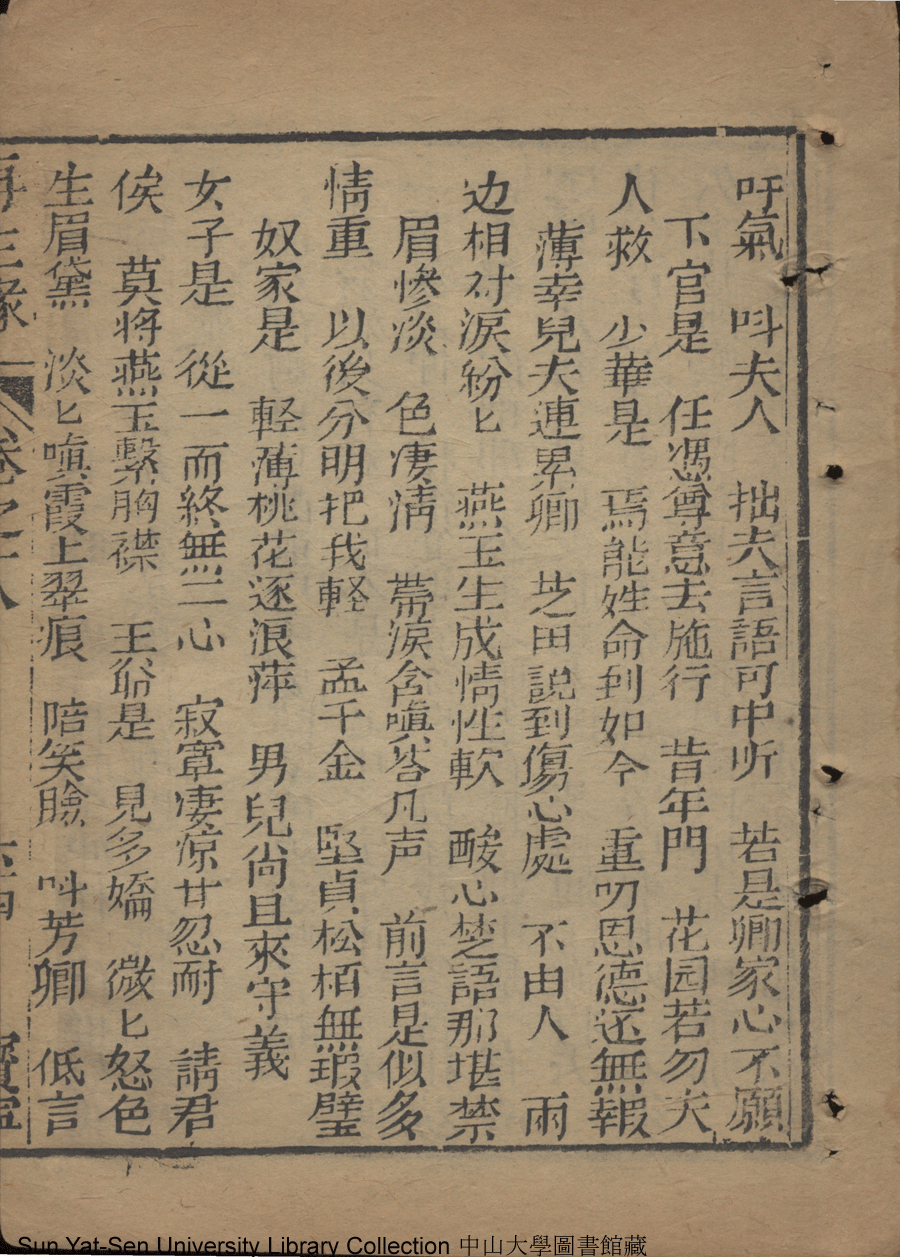 吁氣　呌夫人　拙夫言語可中听　若是卿家心不願
下官是　任憑尊意去施行　昔年門　花园若勿夫
人救　少華是　焉能姓命到如今　重叨恩德还無報
薄幸兒夫連累卿　芝田説到傷心處　不由人　兩
边相对淚紛匕　燕玉生成情性軟　酸心楚語那堪禁
眉慘淡　色凄清　帶淚含嗔荅凡声　前言是似多
情重　以後分明把我軽　孟千金　堅貞松栢無瑕璧
奴家是　軽薄桃花逐浪萍　男兒尚且來守義
女子是　從一而終無二心　寂寞凄凉甘忍耐　請君
俟　莫将燕玉繫胸襟　王爺是　見多嬌　微匕怒色
生眉黛　淡匕嗔霞上翠痕　陪笑臉　呌芳卿　低言
再生緣　卷之十八